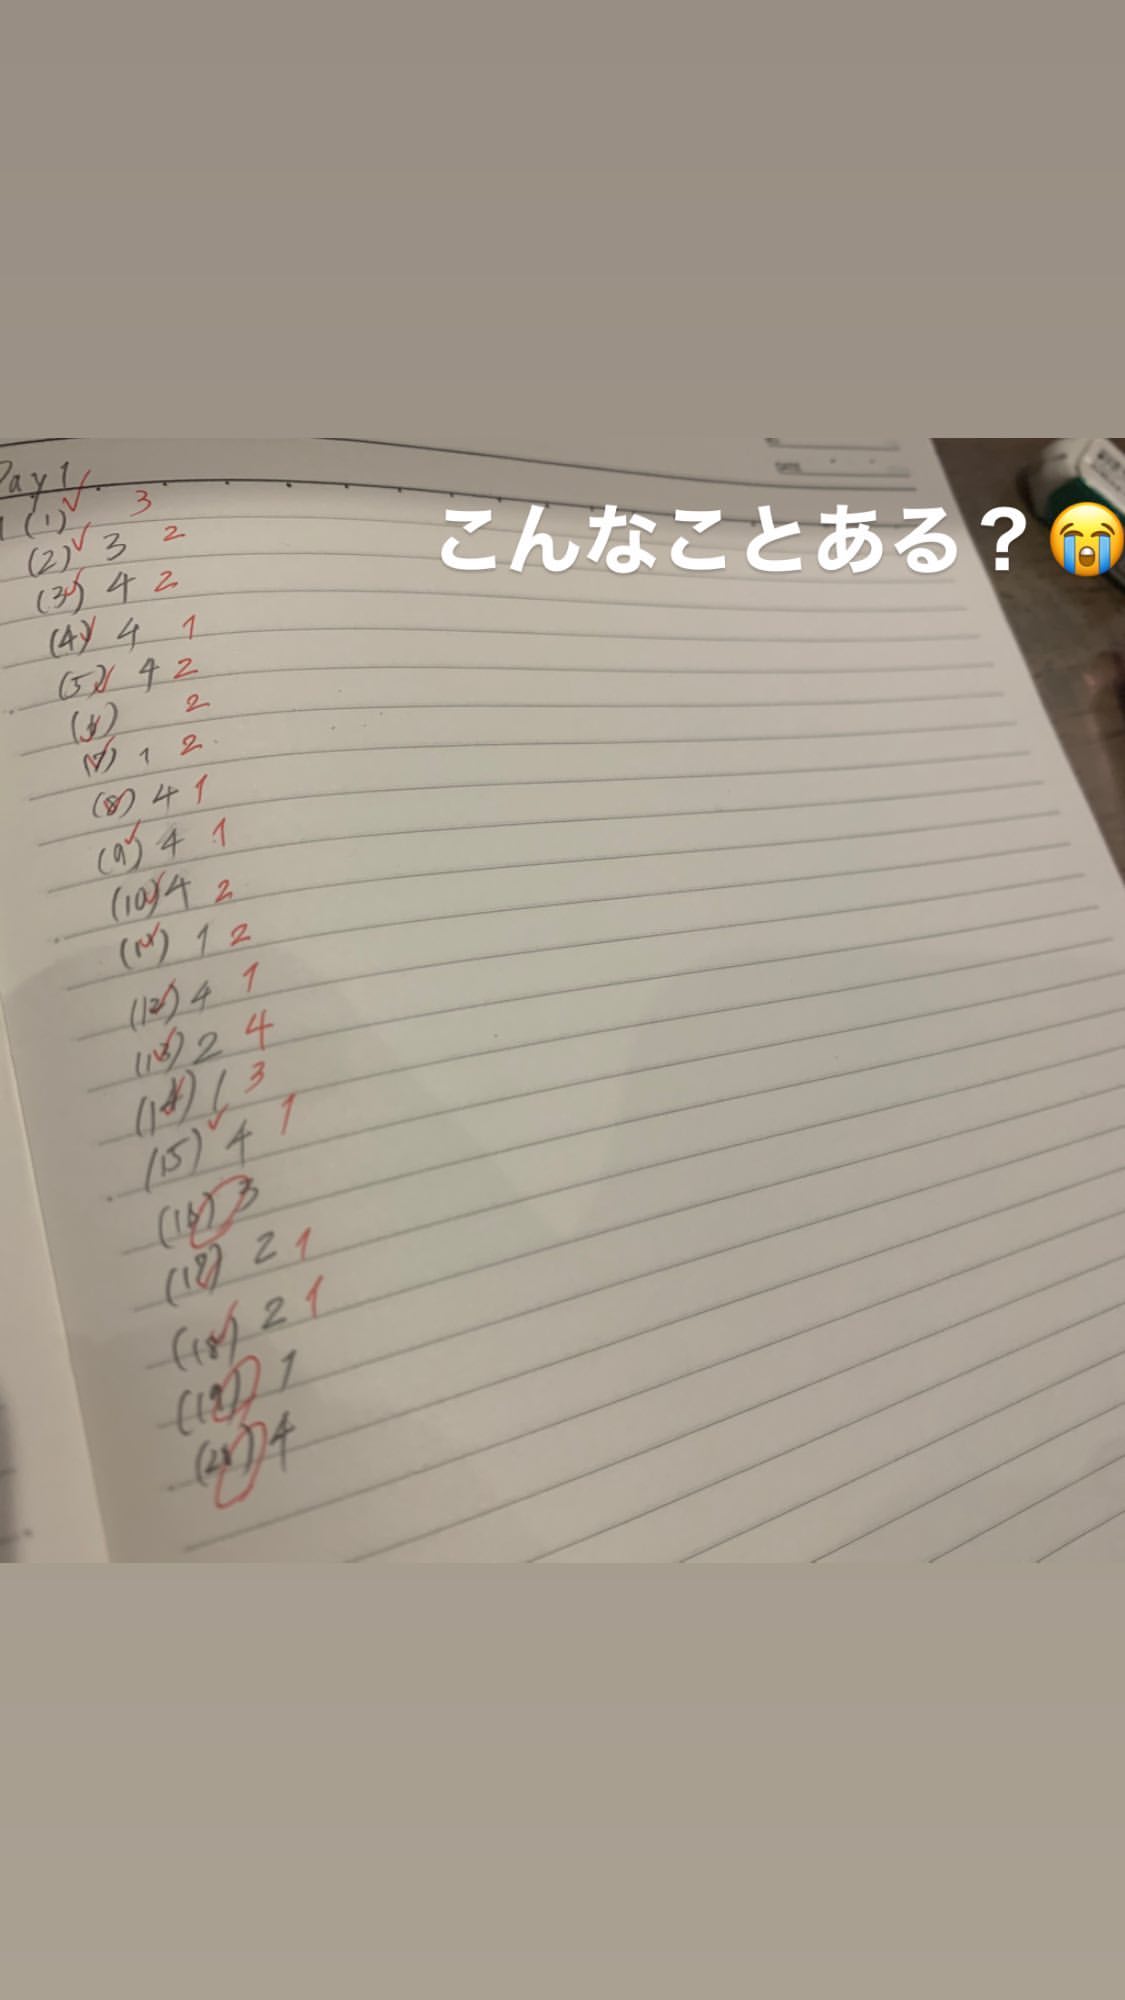 Day 1
1 (1) 3
こんなことある？😭
(2) 3 2
(3) 4 2
(4) 4 1
(5) 4 2
(6) 2
(7) 1 2
(8) 4 1
(9) 4 1
(10) 4 2
(11) 1 2
(12) 4 1
(13) 2 4
(14) 1 3
(15) 4 1
(16) 3
(17) 2 1
(18) 2 1
(19) 1
(20) 4
DATE